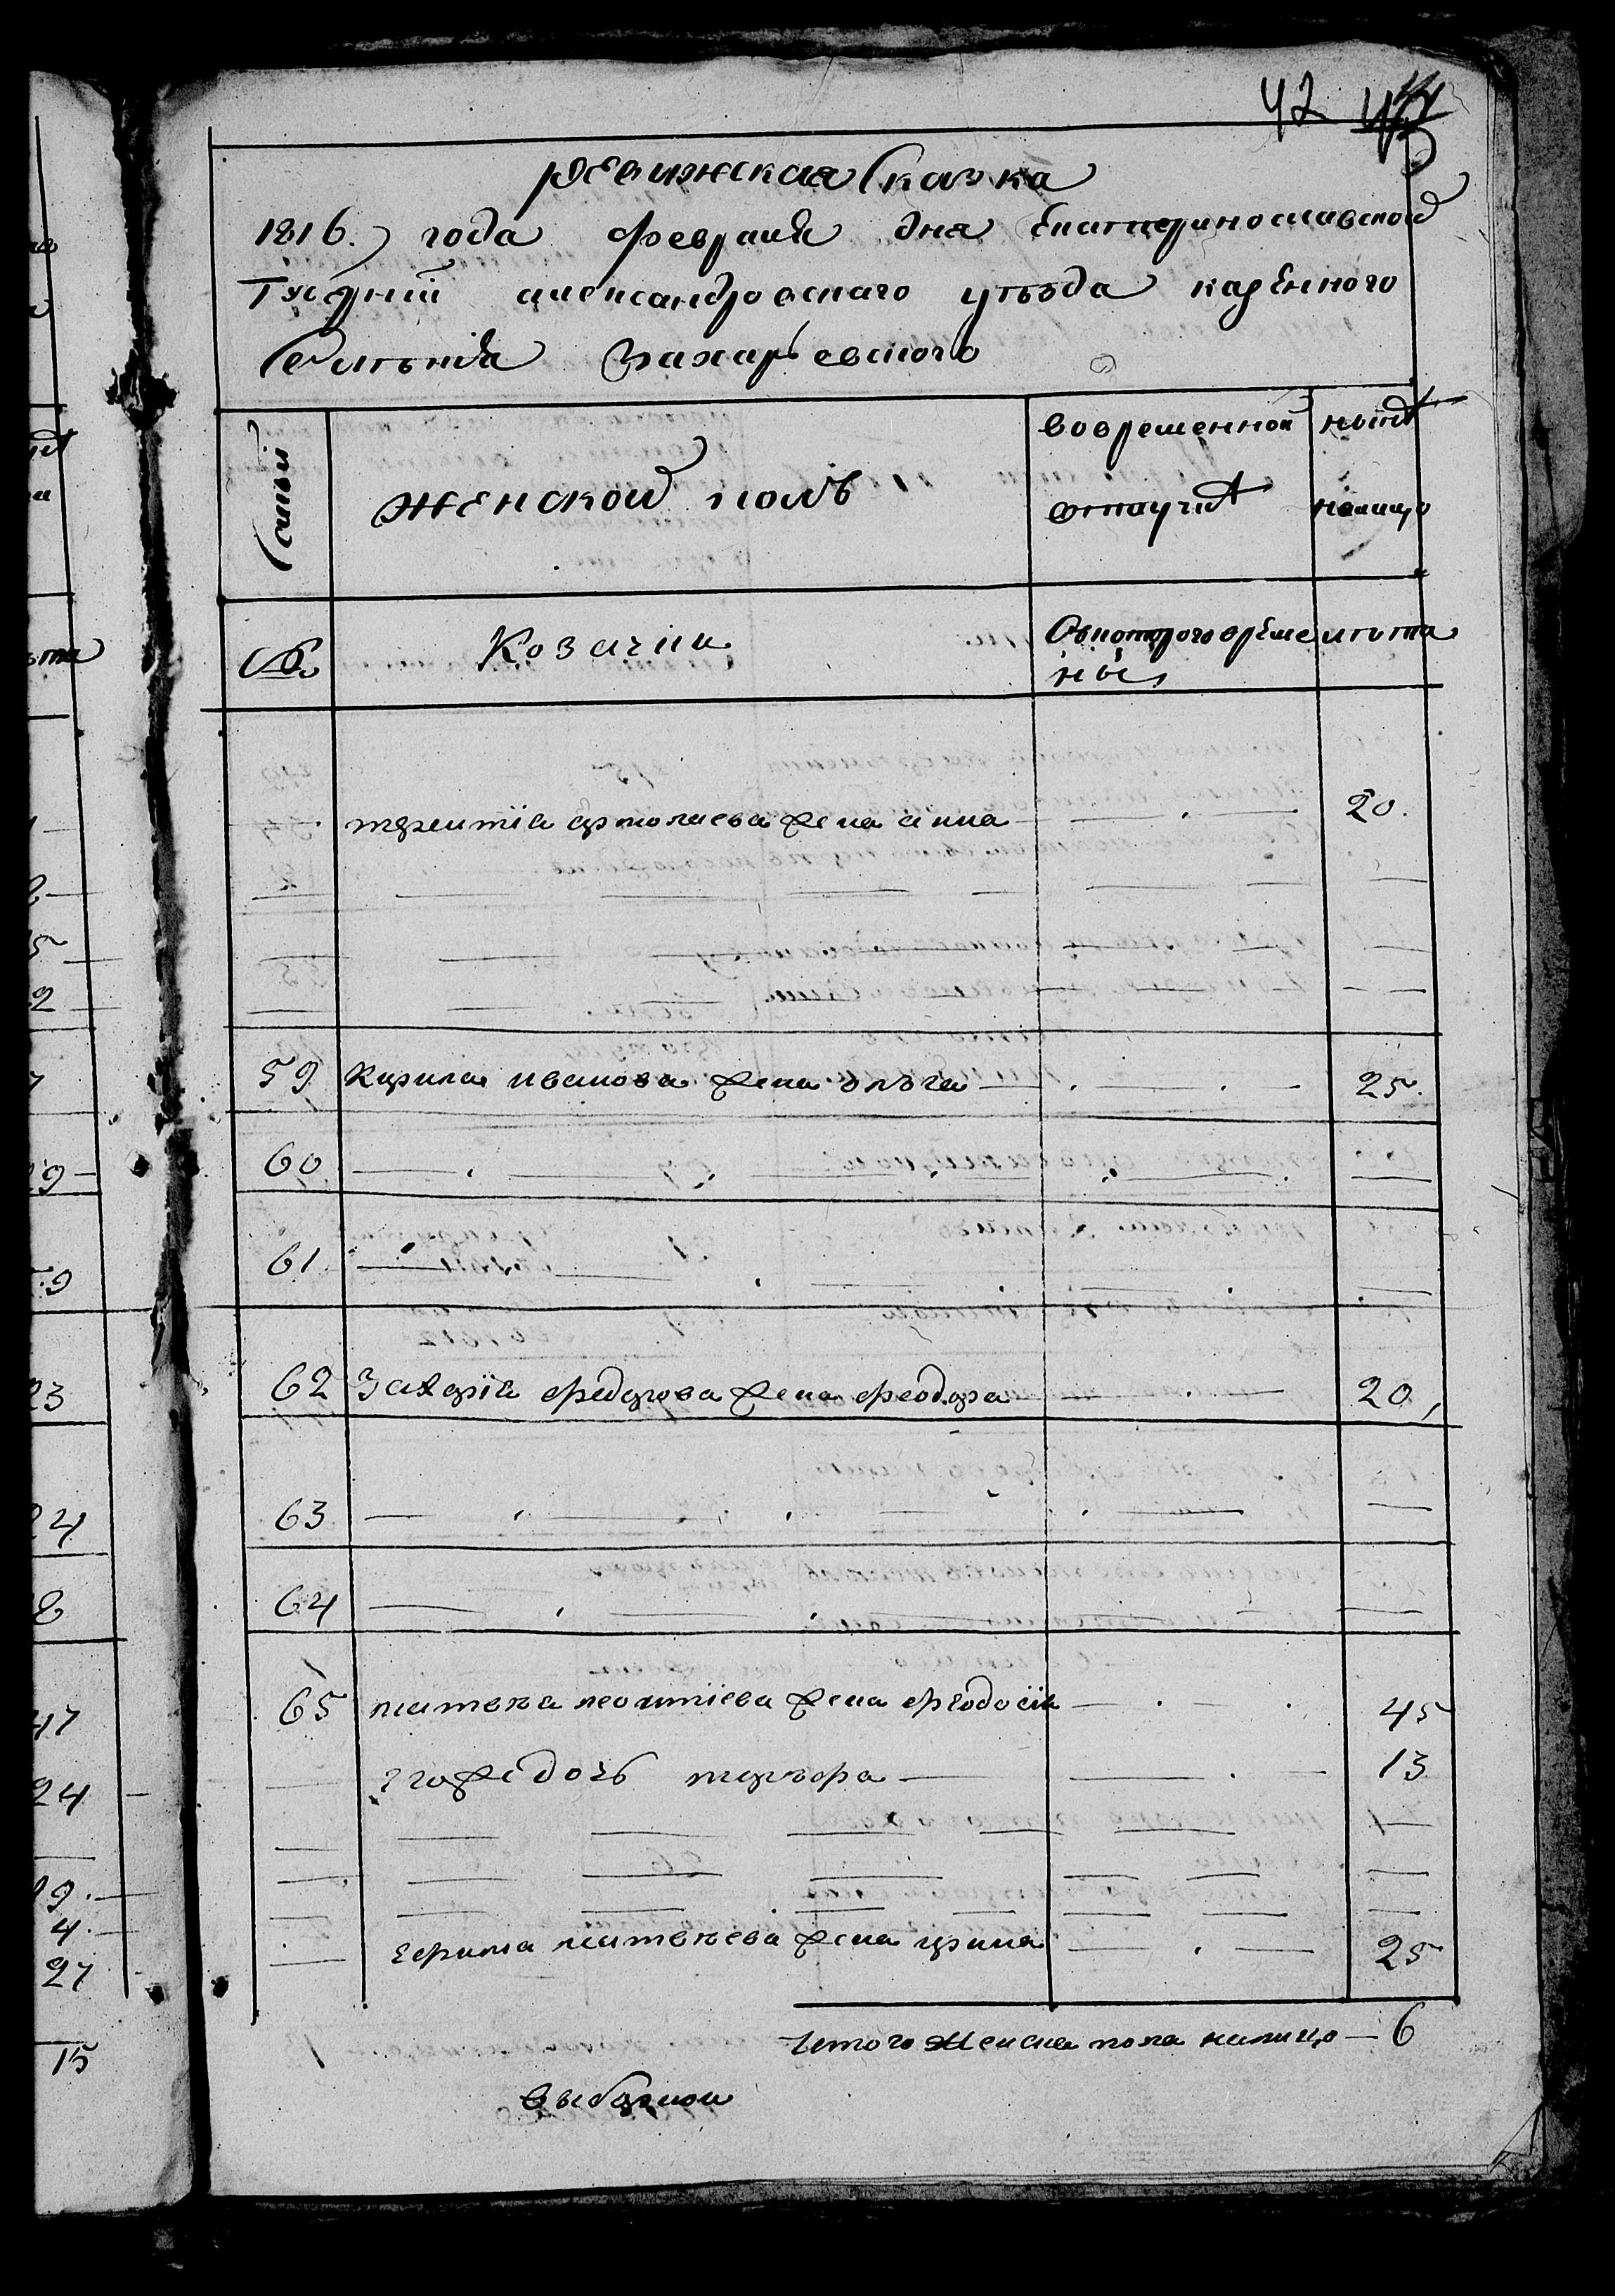 42
Ревижская Сказка
1816. года февраля дня Екатеринославской
Губернии александровскаго уѣзда казенного
Селѣния Захарьевского
Семьи
женской полъ
вовременной
отлучкѣ
нынѣ
налицо
№
Козачки
Скоторого време
ны
лѣта
терентія ермолаева жена анна 20.
59 Кирила иванова жена олъга 25.
60
61
62 Захарія федорова жена феодора 20
63
64
65 матвея леонтіева жена феодосія 45
Егожедочь 13
Ефима матвеева жена ирина 25
Итого женска пола налицо 6
выборной